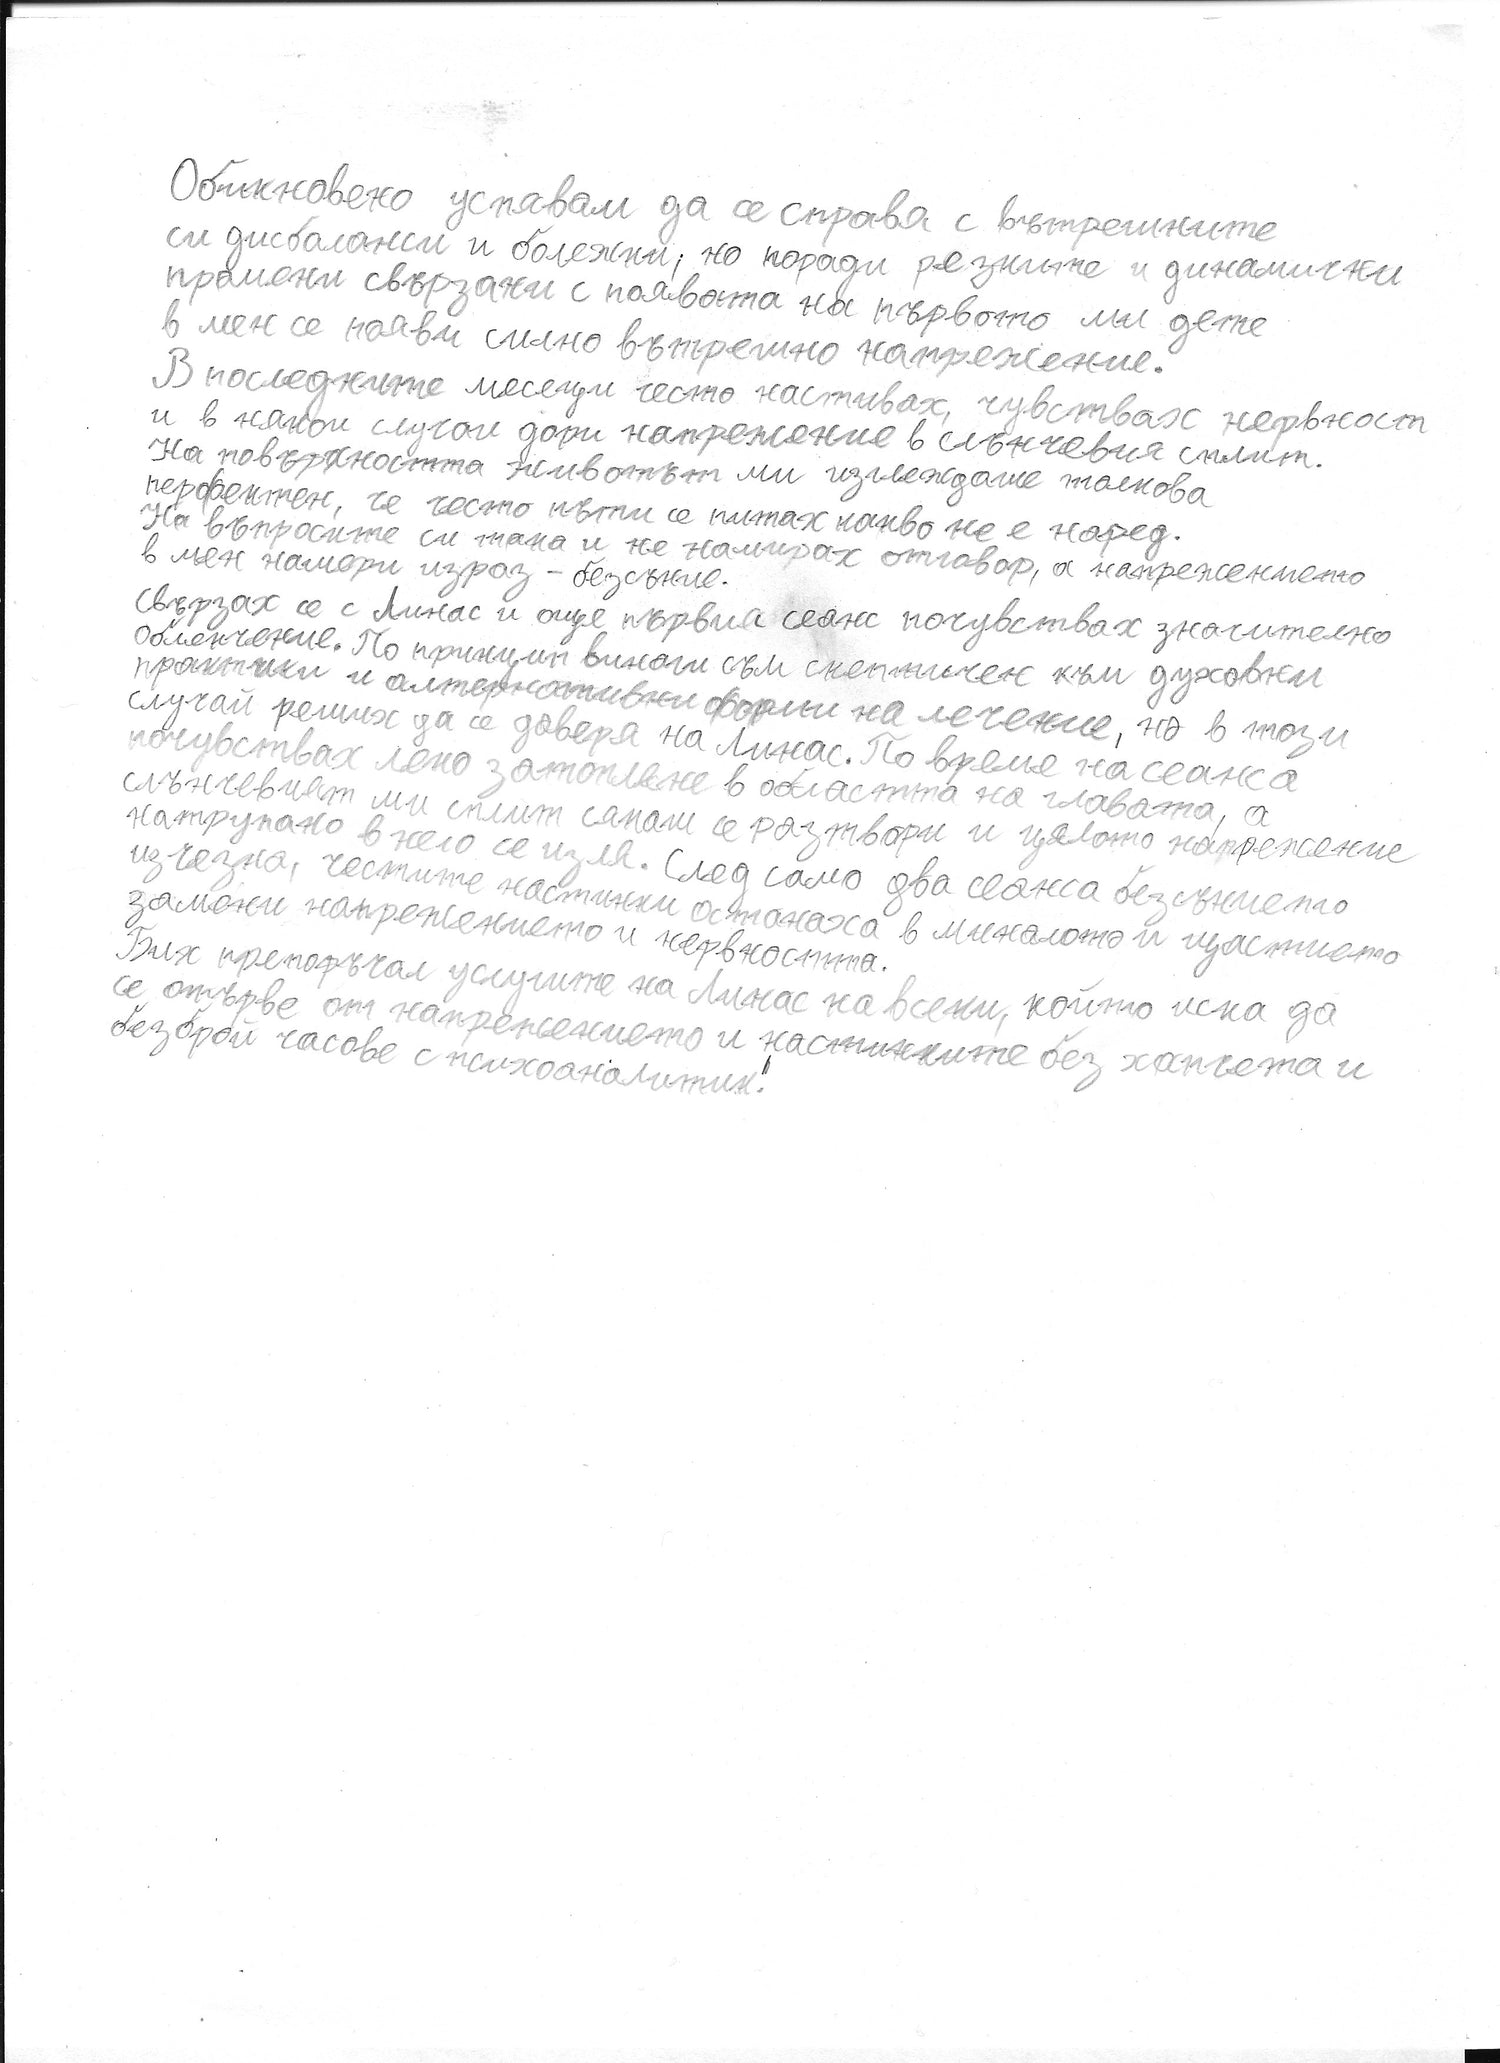 Обикновено успявам да се справя с вътрешните
си дисбаланси и болежки, но поради резките и динамични
промени свързани с появата на първото ми дете
в мен се появи силно вътрешно напрежение.
В последните месеци често настивах, чувствах нервност
и в някои случаи дори напрежение в слънчевия сплит.
На повърхността животът ми изглеждаше толкова
перфектен, че често пъти се питах какво не е наред.
На въпросите си така и не намирах отговор, а напрежението
в мен намери израз – безсъние.
Свързах се с Линас и още първия сеанс почувствах значително
облекчение. По принцип винаги съм скептичен към духовни
практики и алтернативни форми на лечение, но в този
случай реших да се доверя на Линас. По време на сеанса
почувствах леко затопляне в областта на главата, а
слънчевият ми сплит сякаш се разтвори и цялото напрежение
натрупано в него се изля. След само два сеанса безсънието
изчезна, честите настинки останаха в миналото и щастието
замени напрежението и нервността.
Бих препоръчал услугите на Линас на всеки, който иска да
се отърве от напрежението и настинките без хапчета и
безброй часове с психоаналитик!